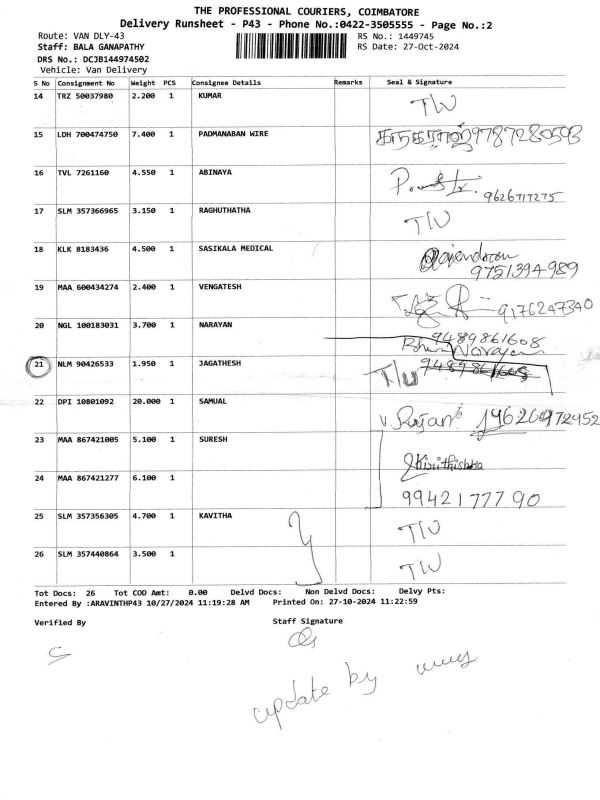 THE PROFESSIONAL COURIERS, COIMBATORE
Delivery Runsheet - P43 - Phone No.:0422-3505555 - Page No.:2
Route: VAN DLY-43 RS No.: 1449745
Staff: BALA GANAPATHY RS Date: 27-Oct-2024
DRS No.: DCJB144974502
Vehicle: Van Delivery
S No Consignment No Weight PCS Consignee Details Remarks Seal & Signature
14 TRZ 50037980 2.200 1 KUMAR T/U
15 LDH 700474750 7.400 1 PADMANABAN WIRE 9787280593
16 TVL 7261160 4.550 1 ABINAYA
9626717275
17 SLM 357366965 3.150 1 RAGHUTHATHA T/U
18 KLK 8183436 4.500 1 SASIKALA MEDICAL
9751394989
19 MAA 600434274 2.400 1 VENGATESH 9176247340
20 NGL 100183031 3.700 1 NARAYAN 9489861608
Narayan
21 NLM 90426533 1.950 1 JAGATHESH T/U 9489861608
22 DPI 10801092 20.000 1 SAMUAL V. Rajan
23 MAA 867421005 5.100 1 SURESH
24 MAA 867421277 6.100 1
9942177790
25 SLM 357356305 4.700 1 KAVITHA T/U
26 SLM 357440864 3.500 1 T/U
Tot Docs: 26 Tot COD Amt: 0.00 Delvd Docs: Non Delvd Docs: Delvy Pts:
Entered By :ARAVINTHP43 10/27/2024 11:19:28 AM Printed On: 27-10-2024 11:22:59
Verified By Staff Signature
update by